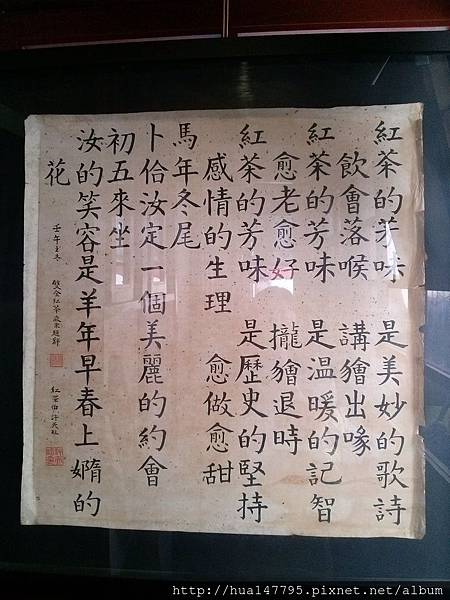 紅茶的芳味 是美妙的歌詩
飲會落喉 講𣍐出喙
紅茶的芳味 是溫暖的記智
愈老愈好 攏𣍐退時
紅茶的芳味 是歷史的堅持
感情的生理 愈做愈甜
馬年冬尾
卜佮汝定一個美麗的約會
初五來坐
汝的笑容是羊年早春上嫷的
花
壬午冬
紅茶伯許天旺
http://hua147795.pixnet.net/album